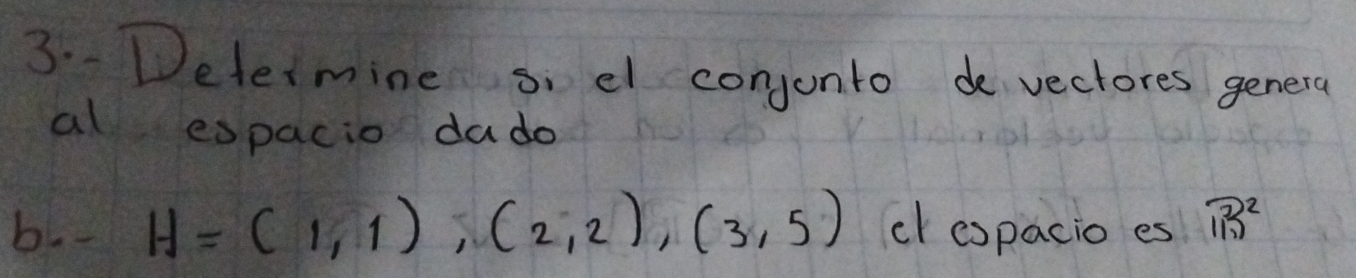 3.- Determine si el conjunto de vectores genera
al espacio dado
b.- H = (1,1), (2,2), (3,5) el espacio es ℝ²